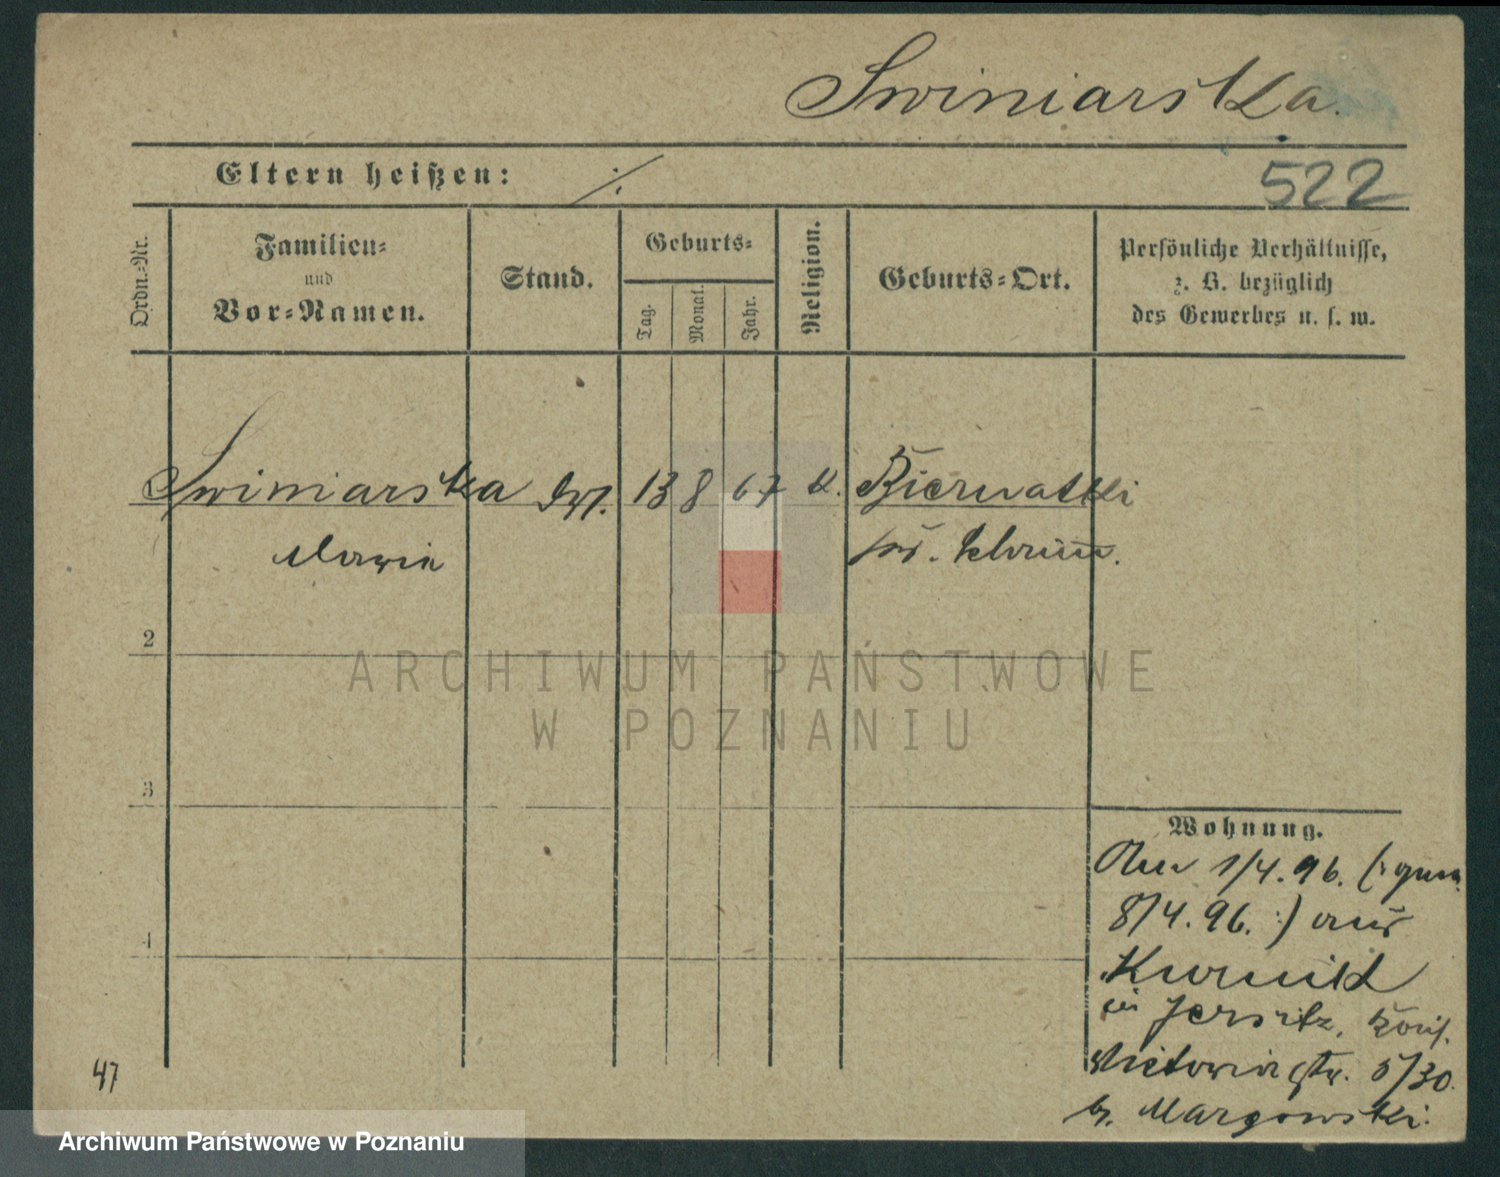 Swiniarska.
Eltern heißen: ./.
522
Ordn.=Nr.
Familien=
und
Vor=Namen.
Stand.
Geburts=
Tag.
Monat.
Jahr.
Religion.
Geburts=Ort.
Persönliche Verhältnisse,
z. B. bezüglich
des Gewerbes u. s. w.
Swiniarska 13 8 67 k. Bierwatki
Maria
2
3
4
ARCHIWUM PAŃSTWOWE
W POZNANIU
Wohnung.
1/4.96. (:
8/4.96. :) aus
Kurnik
in Jersitz,
Victoriastr. 5/30.
b. Margowski.
47
Archiwum Państwowe w Poznaniu